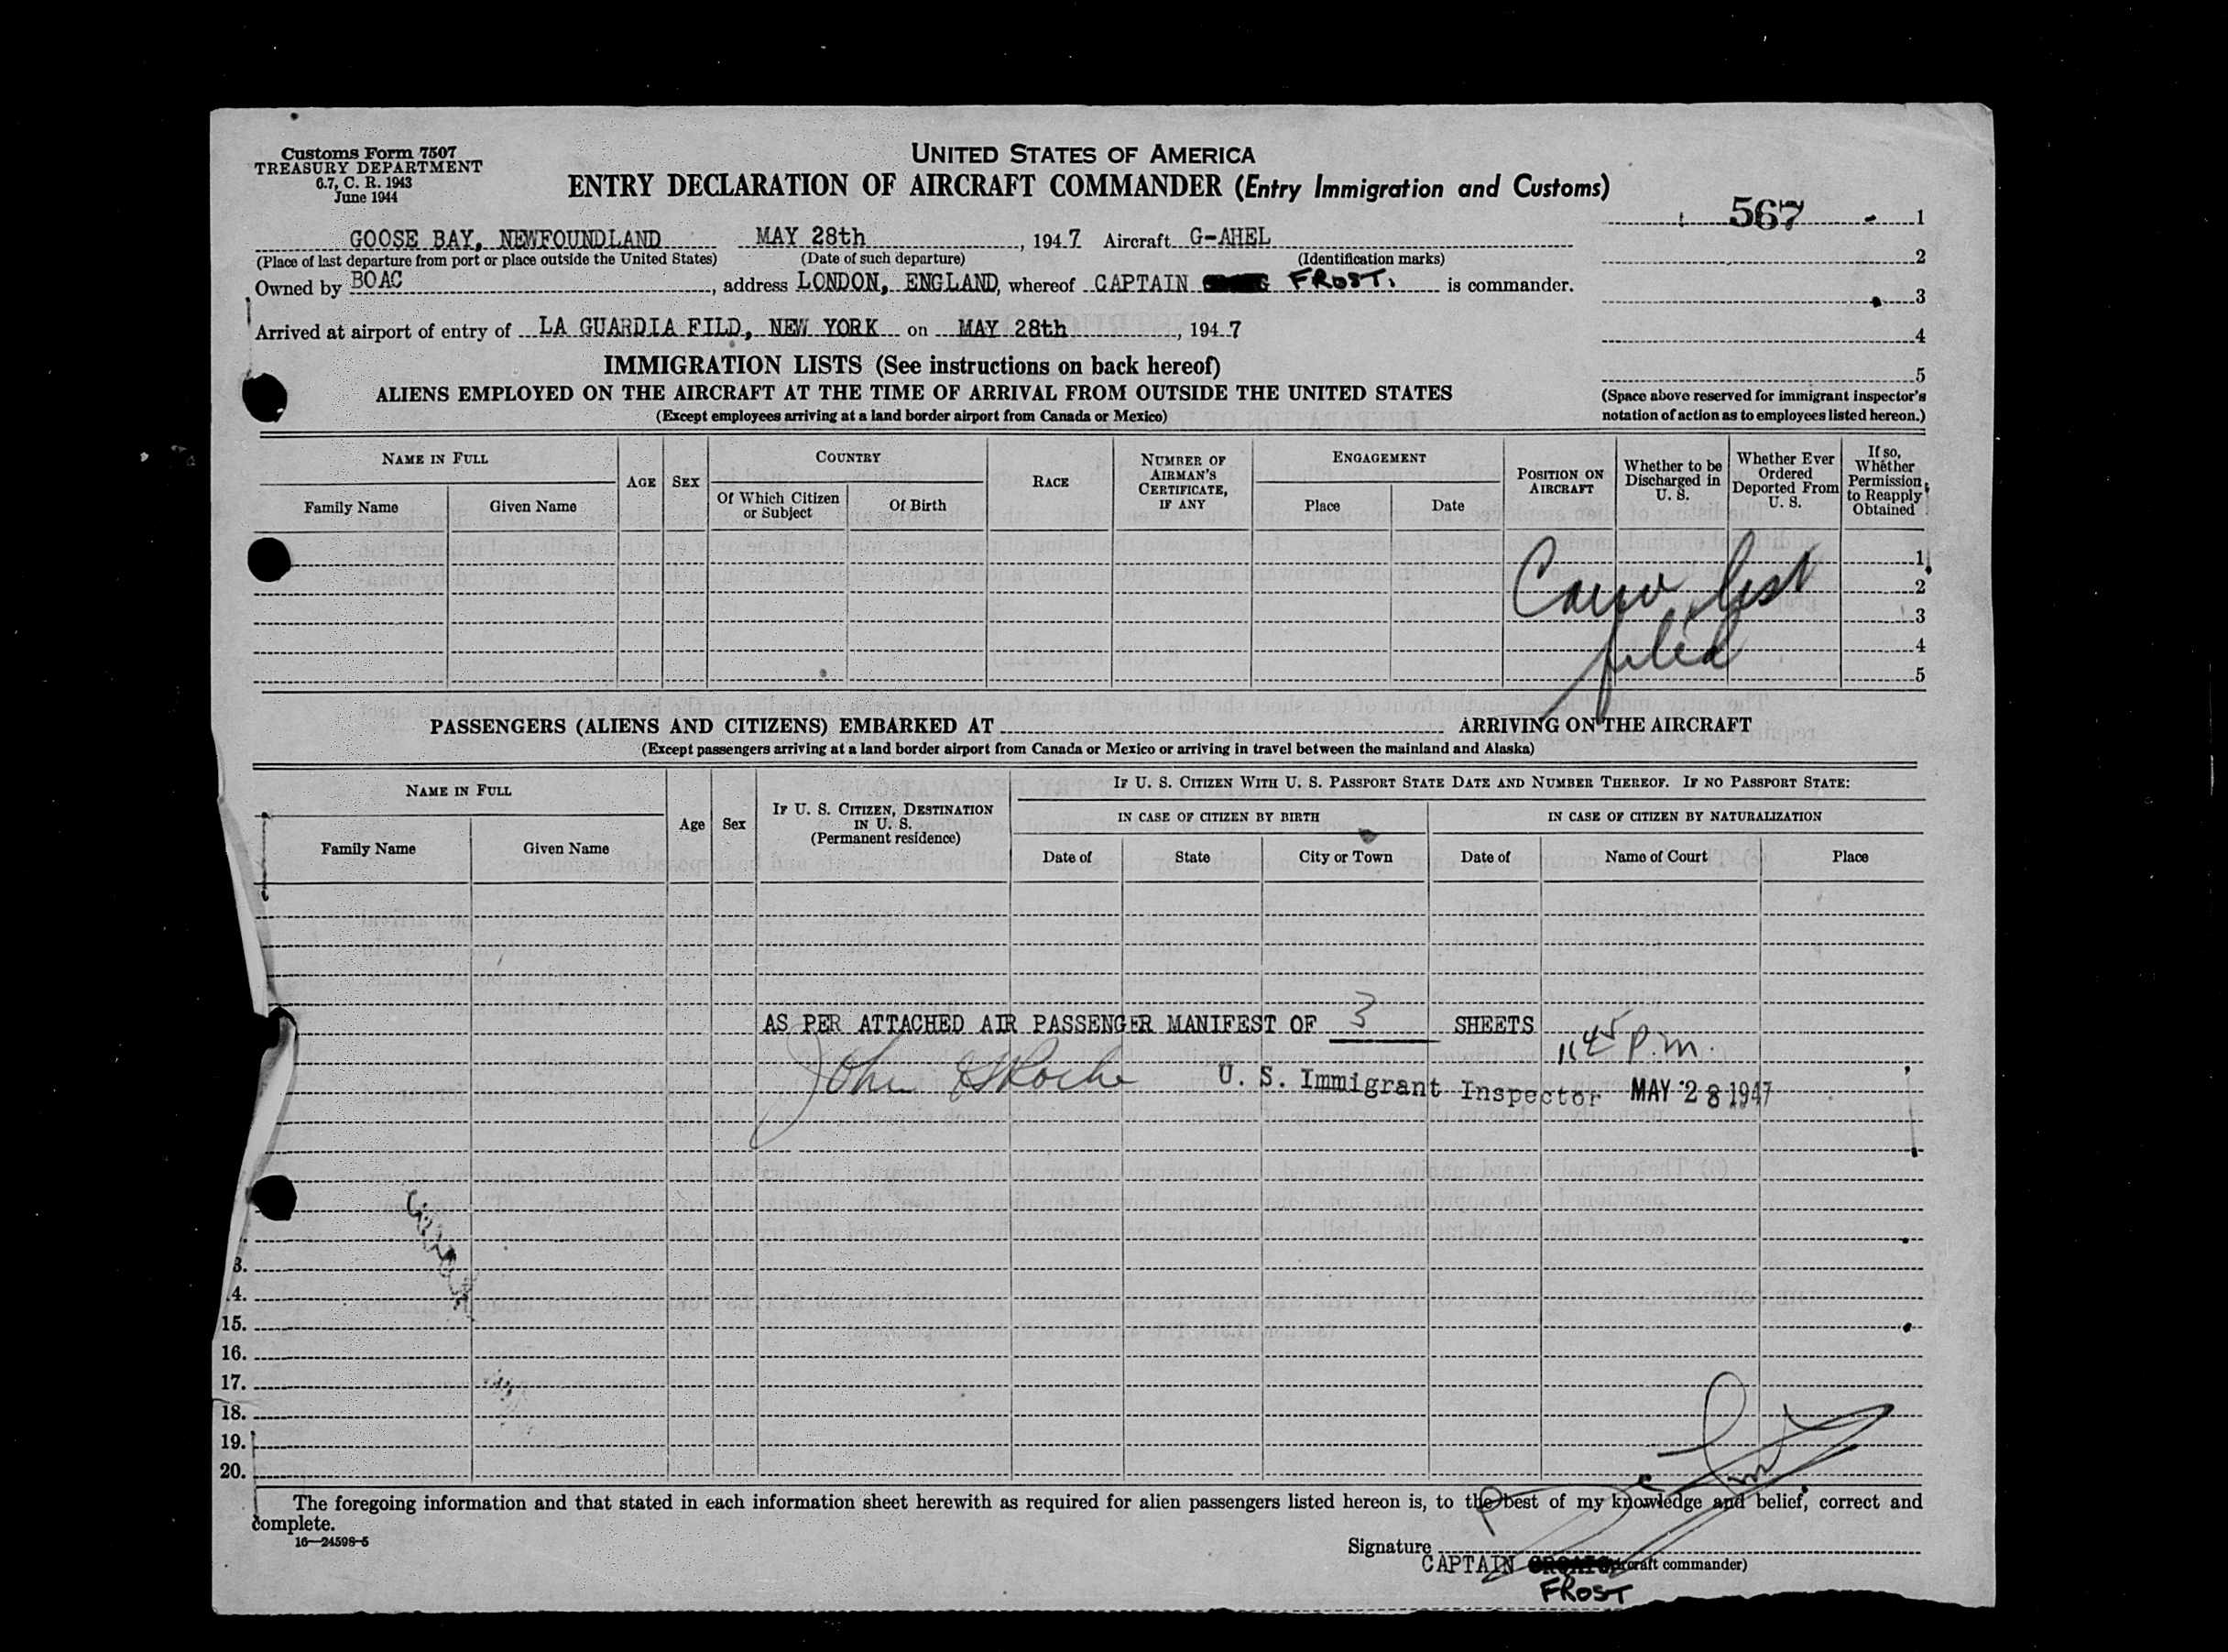 Customs Form 7507
TREASURY DEPARTMENT
6.7, C. R. 1943
June 1944
UNITED STATES OF AMERICA
ENTRY DECLARATION OF AIRCRAFT COMMANDER (Entry Immigration and Customs)
567
1
2
3
4
5
GOOSE BAY, NEWFOUNDLAND MAY 28th, 1947 Aircraft G-AHEL
(Place of last departure from port or place outside the United States) (Date of such departure) (Identification marks)
Owned by BOAC, address LONDON, ENGLAND, whereof CAPTAIN FROST. is commander.
Arrived at airport of entry of LA GUARDIA FILD, NEW YORK on MAY 28th, 1947
IMMIGRATION LISTS (See instructions on back hereof)
ALIENS EMPLOYED ON THE AIRCRAFT AT THE TIME OF ARRIVAL FROM OUTSIDE THE UNITED STATES
(Except employees arriving at a land border airport from Canada or Mexico)
(Space above reserved for immigrant inspector's
notation of action as to employees listed hereon.)
NAME IN FULL
Family Name
Given Name
AGE
SEX
COUNTRY
Of Which Citizen
or Subject
Of Birth
RACE
NUMBER OF
AIRMAN'S
CERTIFICATE,
IF ANY
ENGAGEMENT
Place
Date
POSITION ON
AIRCRAFT
Whether to be
Discharged in
U. S.
Whether Ever
Ordered
Deported From
U. S.
If so,
Whether
Permission
to Reapply
Obtained
1
2
3
4
5
list
filed
PASSENGERS (ALIENS AND CITIZENS) EMBARKED AT ARRIVING ON THE AIRCRAFT
(Except passengers arriving at a land border airport from Canada or Mexico or arriving in travel between the mainland and Alaska)
NAME IN FULL
Family Name
Given Name
Age
Sex
IF U. S. CITIZEN, DESTINATION
IN U. S.
(Permanent residence)
IF U. S. CITIZEN WITH U. S. PASSPORT STATE DATE AND NUMBER THEREOF. IF NO PASSPORT STATE:
IN CASE OF CITIZEN BY BIRTH
IN CASE OF CITIZEN BY NATURALIZATION
Date of
State
City or Town
Date of
Name of Court
Place
AS PER ATTACHED AIR PASSENGER MANIFEST OF 3 SHEETS
1145 p.m.
John Roche U. S. Immigrant Inspector MAY 28 1947
3.
4.
15.
16.
17.
18.
19.
20.
The foregoing information and that stated in each information sheet herewith as required for alien passengers listed hereon is, to the best of my knowledge and belief, correct and
complete.
16—24598-5
Signature
CAPTAIN craft commander)
FROST